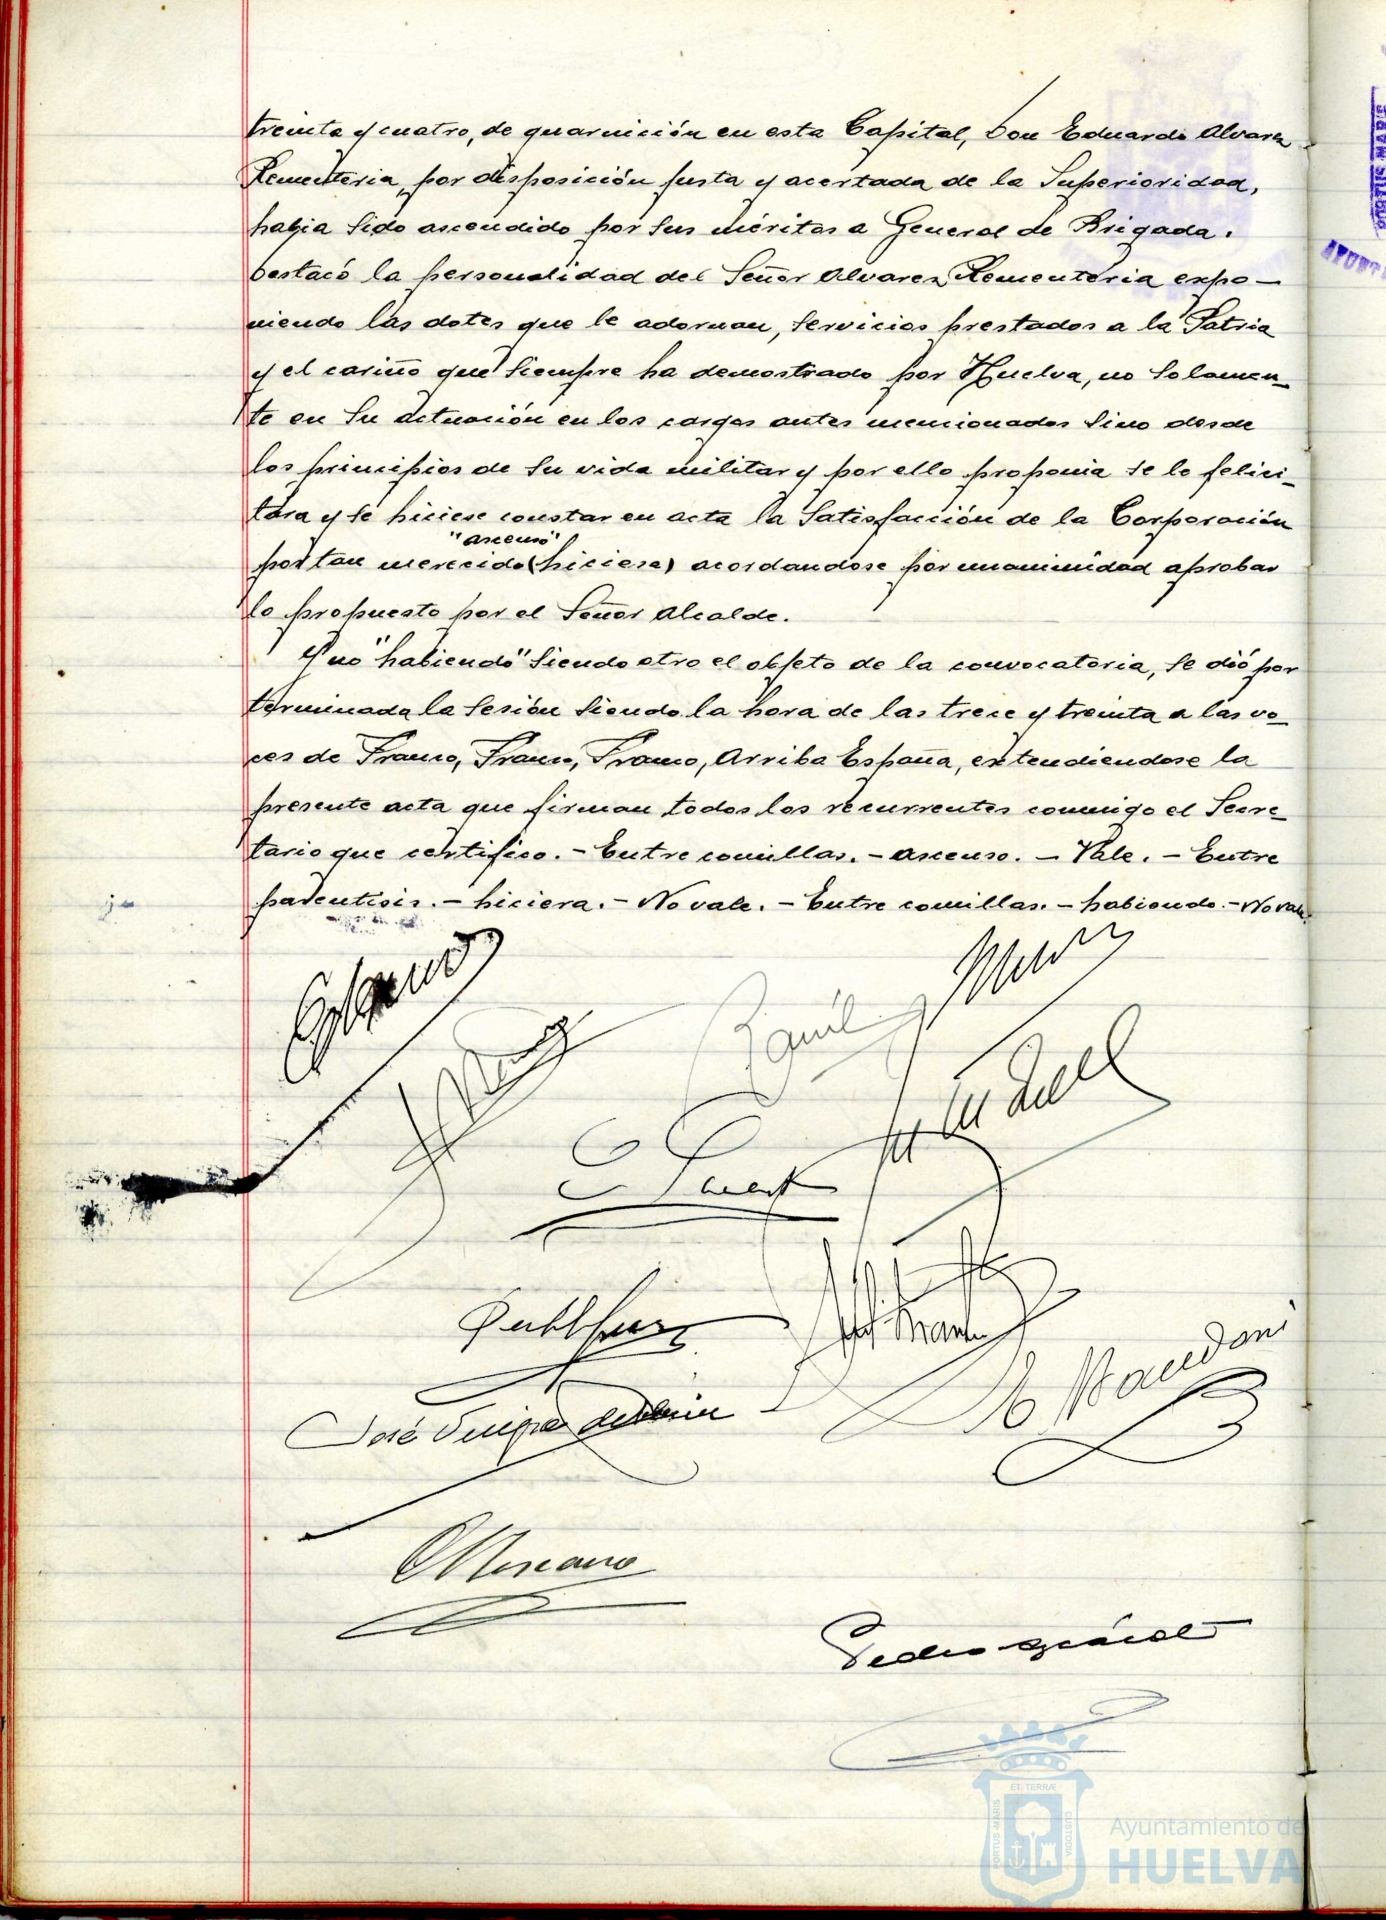 treinta y cuatro, de guarnición en esta Capital, Don Eduardo Alvarez
Rementeria, por disposición justa y acertada de la Superioridad,
había sido ascendido por sus méritos a General de Brigada.
Destacó la personalidad del Señor Alvarez Rementería expo-
niendo las dotes que le adornan, servicios prestados a la Patria
y el cariño que siempre ha demostrado por Huelva, no solamen-
te en su actuación en los cargos antes mencionados sino desde
los principios de su vida militar y por ello proponia se le felici-
tara y se hiciese constar en acta la satisfacción de la Corporación
"ascenso"
por tan merecido (hiciera) acordandose por unanimidad aprobar
lo propuesto por el Señor Alcalde.
Y no "habiendo" siendo otro el objeto de la convocatoria, se dió por
terminada la sesión siendo la hora de las trece y treinta a las vo-
ces de Franco, Franco, Franco, Arriba España, extendiendose la
presente acta que firman todos los recurrentes conmigo el Secre-
tario que certifico. - Entre comillas. - ascenso. - Vale. - Entre
parentisis. - hiciera. - No vale. - Entre comillas. - habiendo. - No vale.
José
Pedro
PORTUS MARIS
ET TERRÆ
CUSTODIA
Ayuntamiento de
HUELVA
PORTUS MARIS